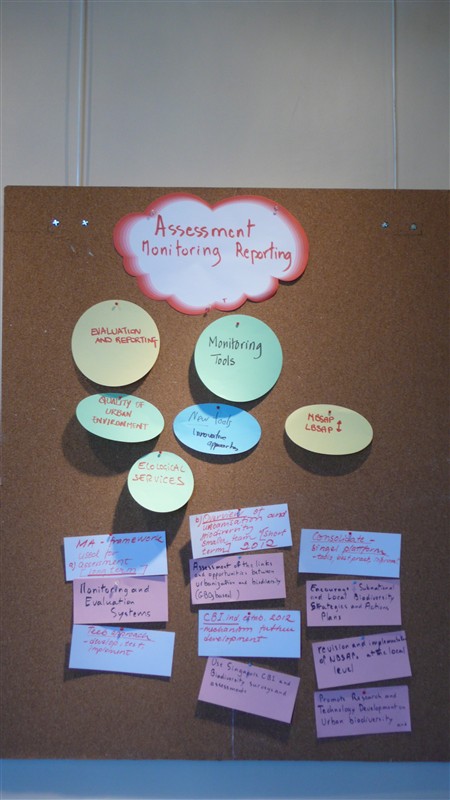 Assessment
Monitoring Reporting
EVALUATION
AND REPORTING
Monitoring
Tools
QUALITY OF
URBAN
ENVIRONMENT
New Tools
Innovative
approaches
NBSAP
LBSAP
ECOLOGICAL
SERVICES
MA - framework
used for
assessment
(long term)
Monitoring and
Evaluation
Systems
- develop, test,
implement
Overview of
urbanisation and
biodiversity
small team (short
term) 2012
Assessment of the links
and opportunities between
urbanization and biodiversity
(GBO3 based)
CBI 2012
- mechanism
Use Singapore CBI and
Biodiversity surveys and
assessments
Consolidate -
platforms
Encourage Subnational
and Local Biodiversity
Strategies and Action
Plans
revision and implementation
of NBSAPs at the local
level
Promote Research and
Technology Development on
Urban biodiversity and